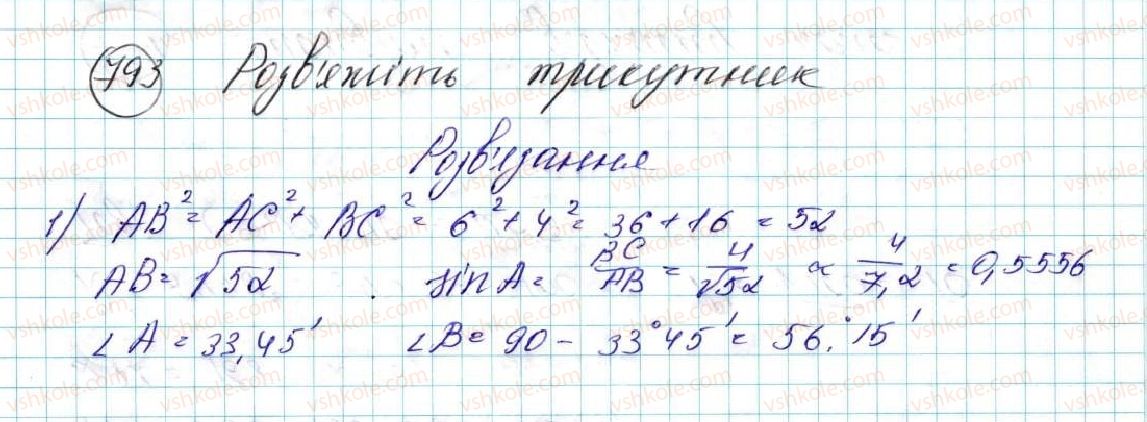 793 Розв'яжіть трикутник
Розв'язання
1) AB² = AC² + BC² = 6² + 4² = 36 + 16 = 52
AB = √52 . sin A = BC/AB = 4/√52 ∝ 4/7,2 = 0,5556
∠A = 33,45' ∠B = 90 - 33°45' = 56°15'